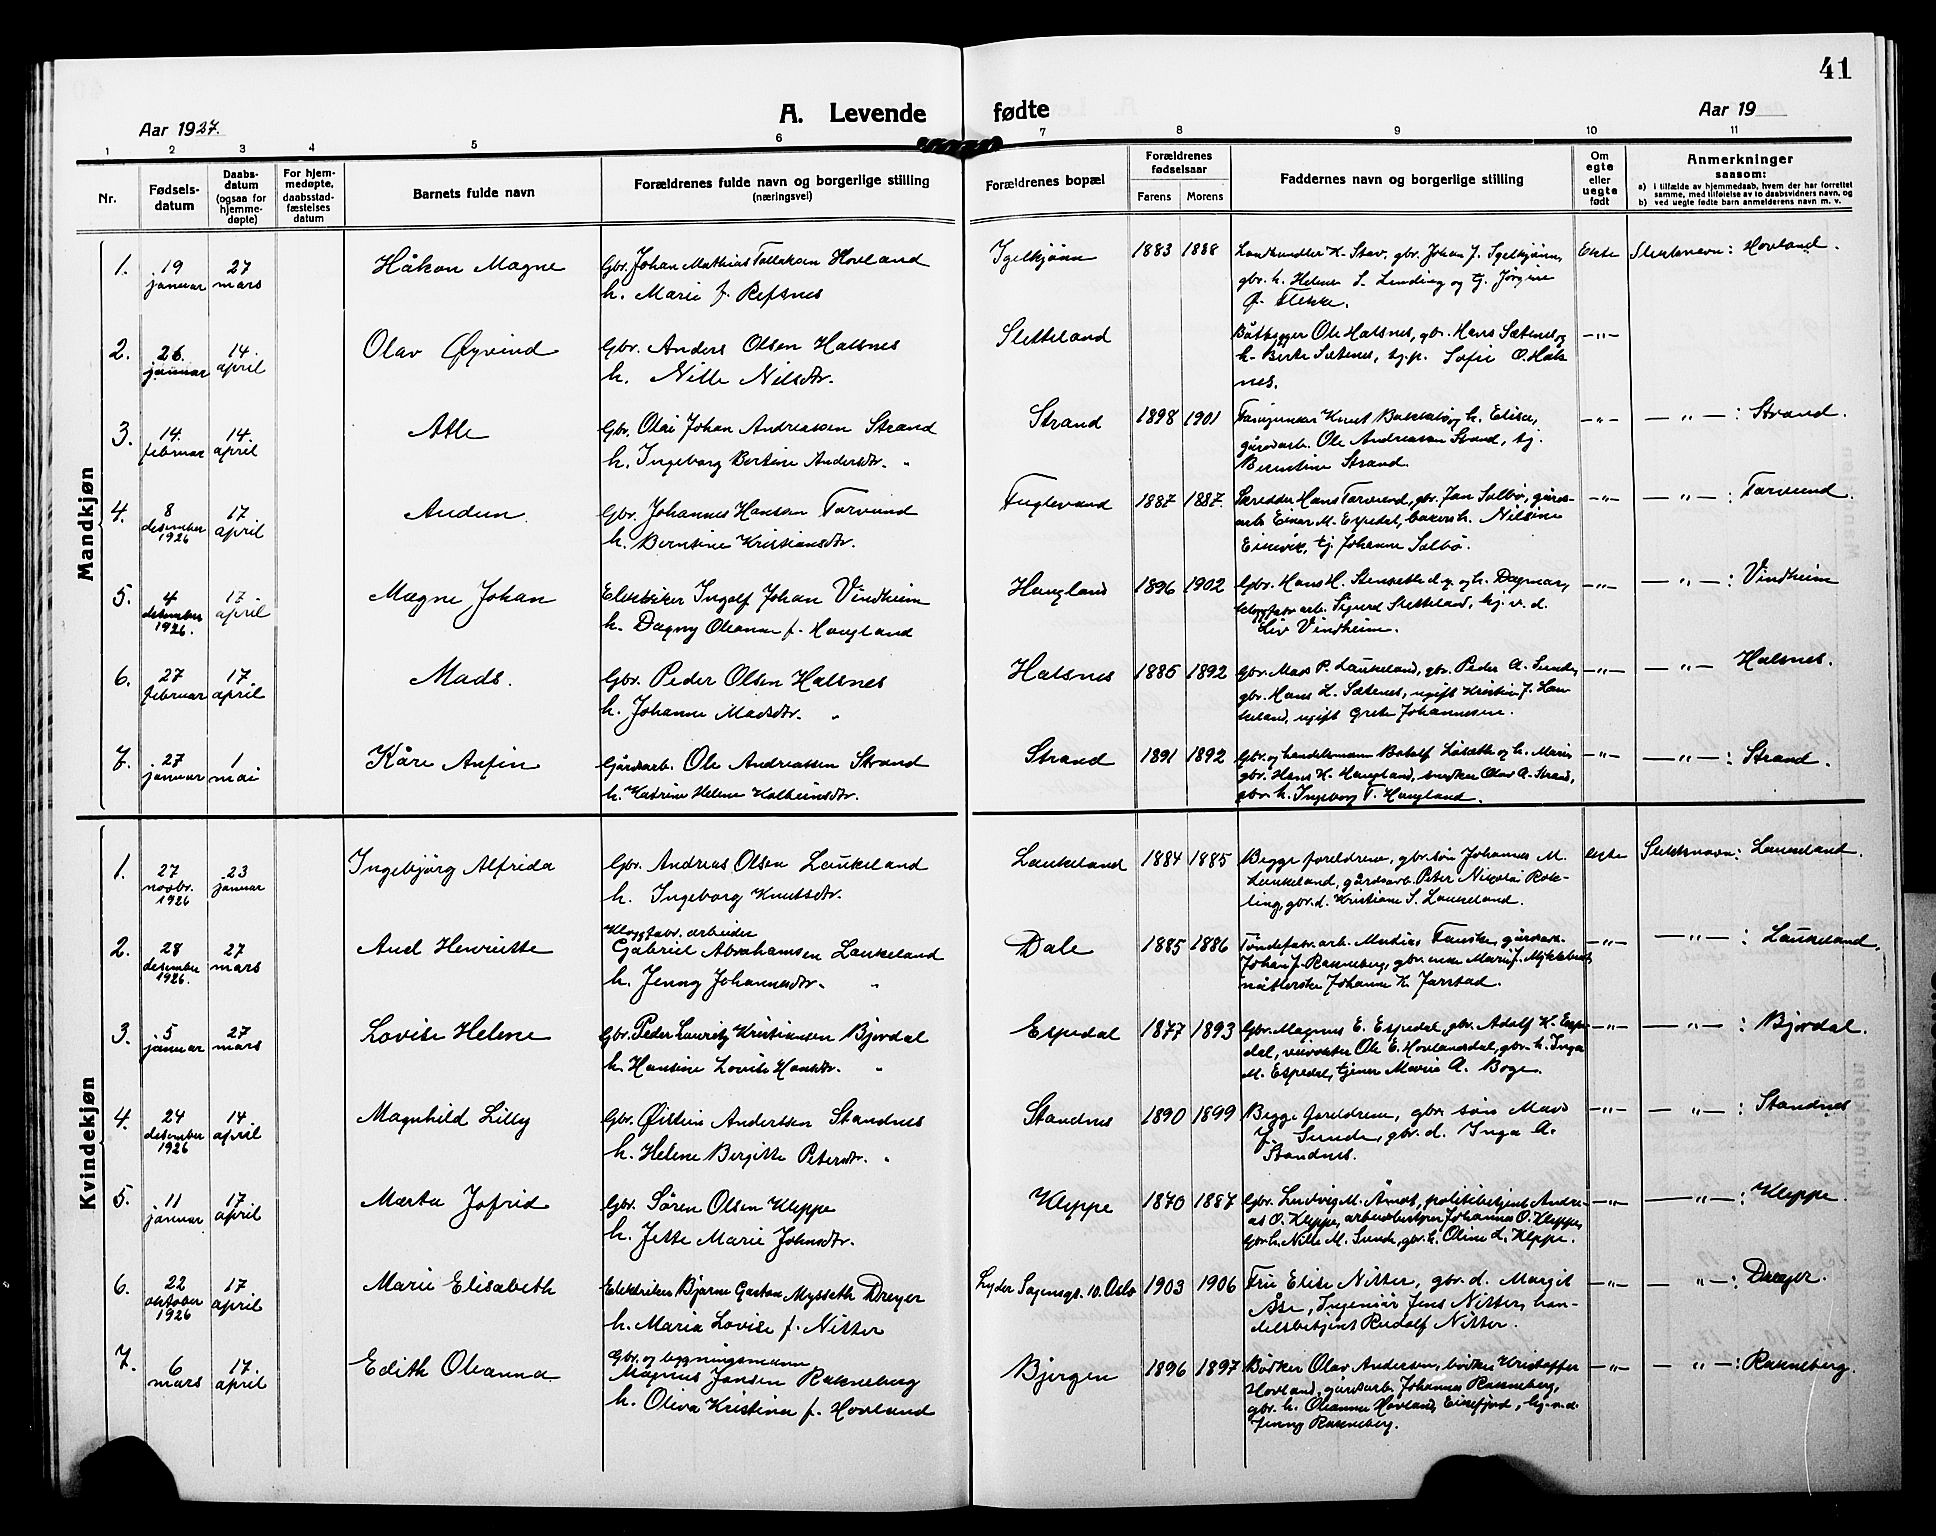 41
A. Levende fødte
Aar 1927.
Aar 19
1 2 3 4 5 6 7 8 9 10 11
Nr.
Fødsels-
datum
Daabs-
datum
(ogsaa for
hjemme-
døpte)
For hjem-
medøpte,
daabsstad-
fæstelses
datum
Barnets fulde navn
Forældrenes fulde navn og borgerlige stilling
(næringsvei)
Forældrenes bopæl
Forældrenes
fødselsaar
Farens Morens
Faddernes navn og borgerlige stilling
Om
egte
eller
uegte
født
Anmerkninger
saasom:
a) i tilfælde av hjemmedaab, hvem der har forrettet
samme, med tilføielse av to daabsvidners navn, og
b) ved uegte fødte barn anmelderens navn m. v.
Mandkjøn
1. 19 januar 27 mars Håkon Magne
Gbr. Johan Mathias Tollaksen Hovland
h. Marie f. Refsnes
Igelkjønn 1883 1888
Landhandler K. Stav, gbr. Johan J. Igelkjønn,
gbr. h. Helene S. Lending og tj. Jørgine
Ø. Flekke.
Ekte Slektsnavn: Hovland.
2. 26. januar 14. april Olav Øyvind
Gbr. Anders Olsen Halsnes
h. Nille Nilsdtr.
Sletteland
Båtbygger Ole Halsnes, gbr. Hans Sætenes og
h. Berte Sætenes, tj.p. Sofie O. Hals-
nes.
—"—
3. 14. februar 14. april Atle
Gbr. Olai Johan Andreassen Strand
h. Ingeborg Bertine Andersdtr. "
Strand 1898 1901
Knut Bakkebø og h. Elise,
gårdsarb. Ole Andreassen Strand, tj.
Berentine Strand.
—"— — " —: Strand.
4. 8 desember 1926 17 april Audun.
Gbr. Johannes Hansen Tarvund
h. Berntine Kristiansdtr.
Fuglevand 1887 1887.
Skredder Hans Tarvend, gbr. Jan Solbø, gårds-
arb. Einar M. Espedal, bakersh. Nilsine
Eikevik, tj. Johanne Solbø.
—"— — " —: Tarvund.
5. 4 desember 1926. 17. april Magne Johan
Elektriker Ingolf Johan Vindheim
h. Dagny Oleanna f. Haugland
Haugland 1896 1902
Gbr. Hans H. Stensette d.y. og h. Dagmar,
kloggfabr. arb. Sigurd Sletteland, hj. v. d.
Liv Vindheim.
—"— — " —: Vindheim
6. 27 februar 17. april Mads.
Gbr. Peder Olsen Halsnes
h. Johanne Madsdtr. "
Halsnes 1885 1892
Gbr. Mads P. Laukeland, gbr. Peder A. Sunde,
gbr. Hans L. Sætenes, ugift Kristin J. Lau-
keland, ugift Grete Johannesen.
—"— — " — Halsnes.
7. 27 januar 1 mai Kåre Anfin
Gårdsarb. Ole Andreassen Strand
h. Katrine Helene Kolbeinsdtr.
Strand 1891 1892
Gbr. og handelsmann Botolf Løsætt og h. Marie,
gbr. Hans K. Haugland, snedker Olav A. Strand,
gbr. h. Ingeborg T. Haugland.
—"— — " —: Strand.
Kvindekjøn
1. 27 novbr. 1926 23 januar Ingebjørg Alfrida
Gbr. Andreas Olsen Laukeland
h. Ingeborg Knutsdtr.
Laukeland 1884 1885
Begge foreldrene, gbr. søn Johannes M.
Laukeland, gårdsarb. Peter Nikolai Rok-
ling, gbr. d. Kristiane S. Laukeland.
Ekte Slektsnavn: Laukeland.
2. 28 desember 1926. 27 mars Aud Henriette
Kloggfabr. arbeider
Gabriel Abrahamsen Laukeland
h. Jenny Johannesdtr. "
Dale 1885 1886
Tøndefabr. arb. Mudias Fauske, gårdsarb.
Johan J. Rakneberg, gbr. enke Marie J. Myklebust,
Johanne K. Jarstad.
—"— — " —: Laukeland,
3. 5 januar 27 mars Lovise Helene
Gbr. Peder Lauritz Kristiansen Bjordal
h. Hansine Lovise Hansdtr. "
Espedal 1877 1893
Gbr. Magnus E. Espedal, gbr. Adolf K. Espe-
dal, veivokter Ole E. Hovlandsdal, gbr. h. Inga
M. Espedal, tjener Marie A. Boge.
—"— — " —: Bjordal.
4. 24 desember 1926 14 april Magnhild Lilly
Gbr. Øistein Anderssen Standnes
h. Helene Birgitte Petersdtr. "
Standnes 1890 1899
Begge foreldrene, gbr. søn Mads
J. Sunde, gbr. d. Inga A.
Standnes.
—"— — " —: Standnes
5. 11 januar 17 april Marta Jofrid
Gbr. Søren Olsen Kleppe
h. Jette Marie Johnsdtr.
Kleppe 1870 1887
Gbr. Ludvig M. Åmot, politibetjent Andre-
as O. Kleppe, arbeidsbestyrer Johannes O. Kleppe,
gbr. h. Nille M. Sunde, gbr. h. Oline L. Kleppe.
—"— — " —: Kleppe.
6. 22 oktober 1926 17 april Marie Elisabeth
Elektriker Bjarne Gaston Myhseth Dreyer
h. Maria Lovise f. Nitter
Lyder Sagensgt. 10. Oslo 1903 1906
Fru Elise Nitter, gbr. d. Margit
Åse, Ingeniør Jens Nitter, han-
delsbetjent Rudolf Nitter.
—"— — " —: Dreyer.
7. 6 mars 17. april Edith Oleanna
Gbr. og bygningsmann
Magnus Jansen Rakneberg
h. Oliva Kristina f. Hovland
Bjergen 1896 1897
Bødker Olav Andersen, bødker Kristoffer
Hovland, gårdsarb. Johannes Rakneberg,
gbr. h. Oleanna Hovland, Eikefjord, hj.v.d.
Jenny Rakneberg.
—"— — " —: Rakneberg.